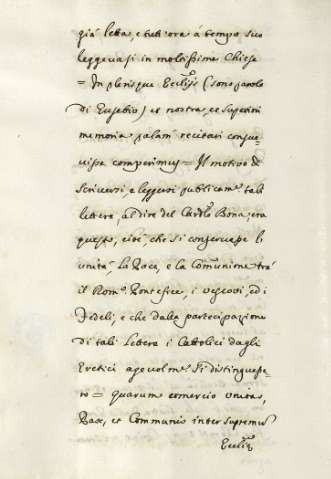 già letta, e tutt'ora à tempo suo
leggevasi in moltissime Chiese
= In plerisque Eccliis (sono parole
di Eusebio) et nostra, et superiori
memoria palam recitari consue-
visse comperimus = Il motivo di
scriversi, e leggersi publicam.e tali
lettere, al dire del Card.l Bona; era
questo, cioè, che si conservasse l'
unità, la Pace, e la Comunione trà
il Rom.o Pontefice, i Vescovi, ed i
Fedeli, e che dalla partecipazione
di tali Lettere i Cattolici dagli
Eretici agevolm.e si distinguesse-
ro = quarum comercio unitas,
Pax, et Communio inter supremus
Eccliæ